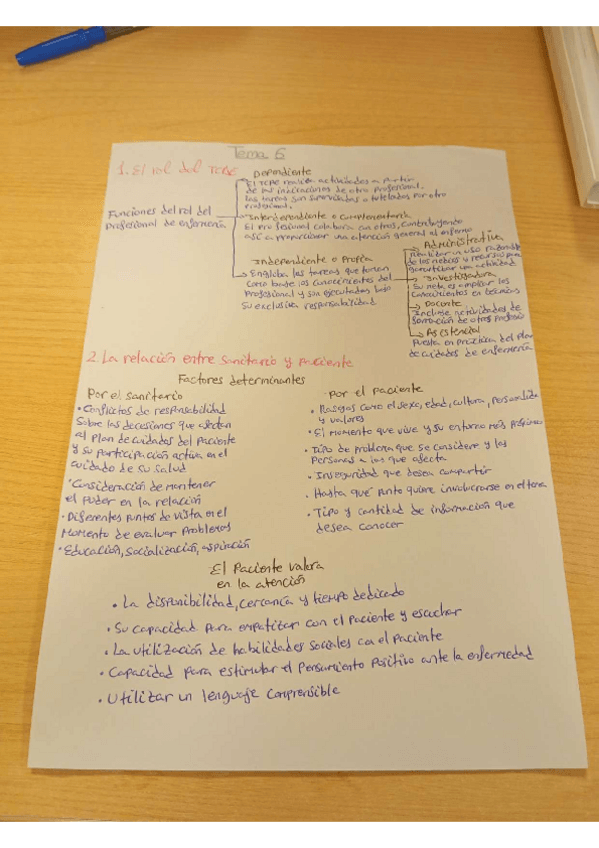 Tema 6
1. El rol del TCAE
Funciones del rol del
Profesional de enfermería
Dependiente
El TCAE realiza actividades a partir
de las indicaciones de otro profesional.
Las tareas son supervisadas o tuteladas por otro
profesional.
Interdependiente o Complementaria
El profesional colabora con otros, contribuyendo
así a proporcionar una atención general al enfermo
Independiente o Propia
Engloba las tareas que tienen
como base los conocimientos del
Profesional y son ejecutadas bajo
su exclusiva responsabilidad
Administrativa
Realizar un uso razonable
de los medios y recursos para
garantizar una actividad
Investigadora
Su meta es ampliar los
conocimientos en técnicas
Docente
Incluye actividades de
formación de otros profesio
Asistencial
Puesta en práctica del plan
de cuidados de enfermería
2. La relación entre sanitario y paciente
Factores determinantes
Por el sanitario
• Conflictos de responsabilidad
sobre las decisiones que afectan
al Plan de cuidados del Paciente
y su participación activa en el
cuidado de su salud
• Consideración de mantener
el poder en la relación
• Diferentes puntos de vista en el
Momento de evaluar problemas
• Educación, socialización, aspiración
Por el paciente
• Rasgos como el sexo, edad, cultura, personalida
y valores
• El momento que vive y su entorno más próximo
• Tipo de problema que se considere y las
Personas a las que afecta
• Inseguridad que desea compartir
• Hasta qué punto quiere involucrarse en el tema
• Tipo y cantidad de información que
desea conocer
El Paciente valora
en la atención
• La disponibilidad, cercanía y tiempo dedicado
• Su capacidad para empatizar con el Paciente y escuchar
• La utilización de habilidades sociales con el Paciente
• Capacidad para estimular el Pensamiento Positivo ante la enfermedad
• Utilizar un lenguaje comprensible